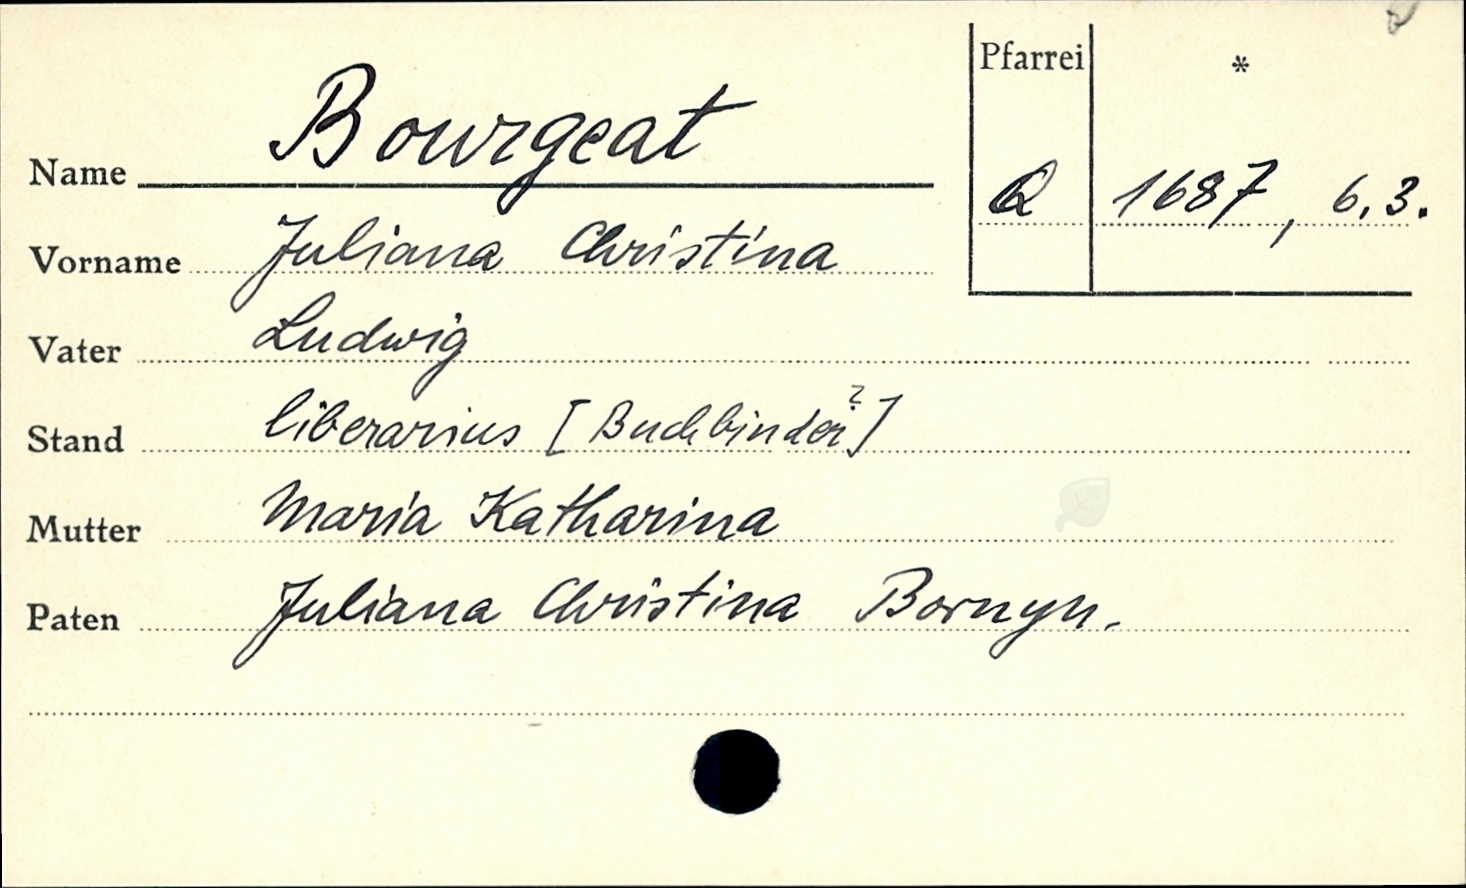 Pfarrei *
Name Bourgeat
Q 1687, 6.3.
Vorname Juliana Christina
Vater Ludwig
Stand liberarius [Buchbinder?]
Mutter Maria Katharina
Paten Juliana Christina Bornyn.